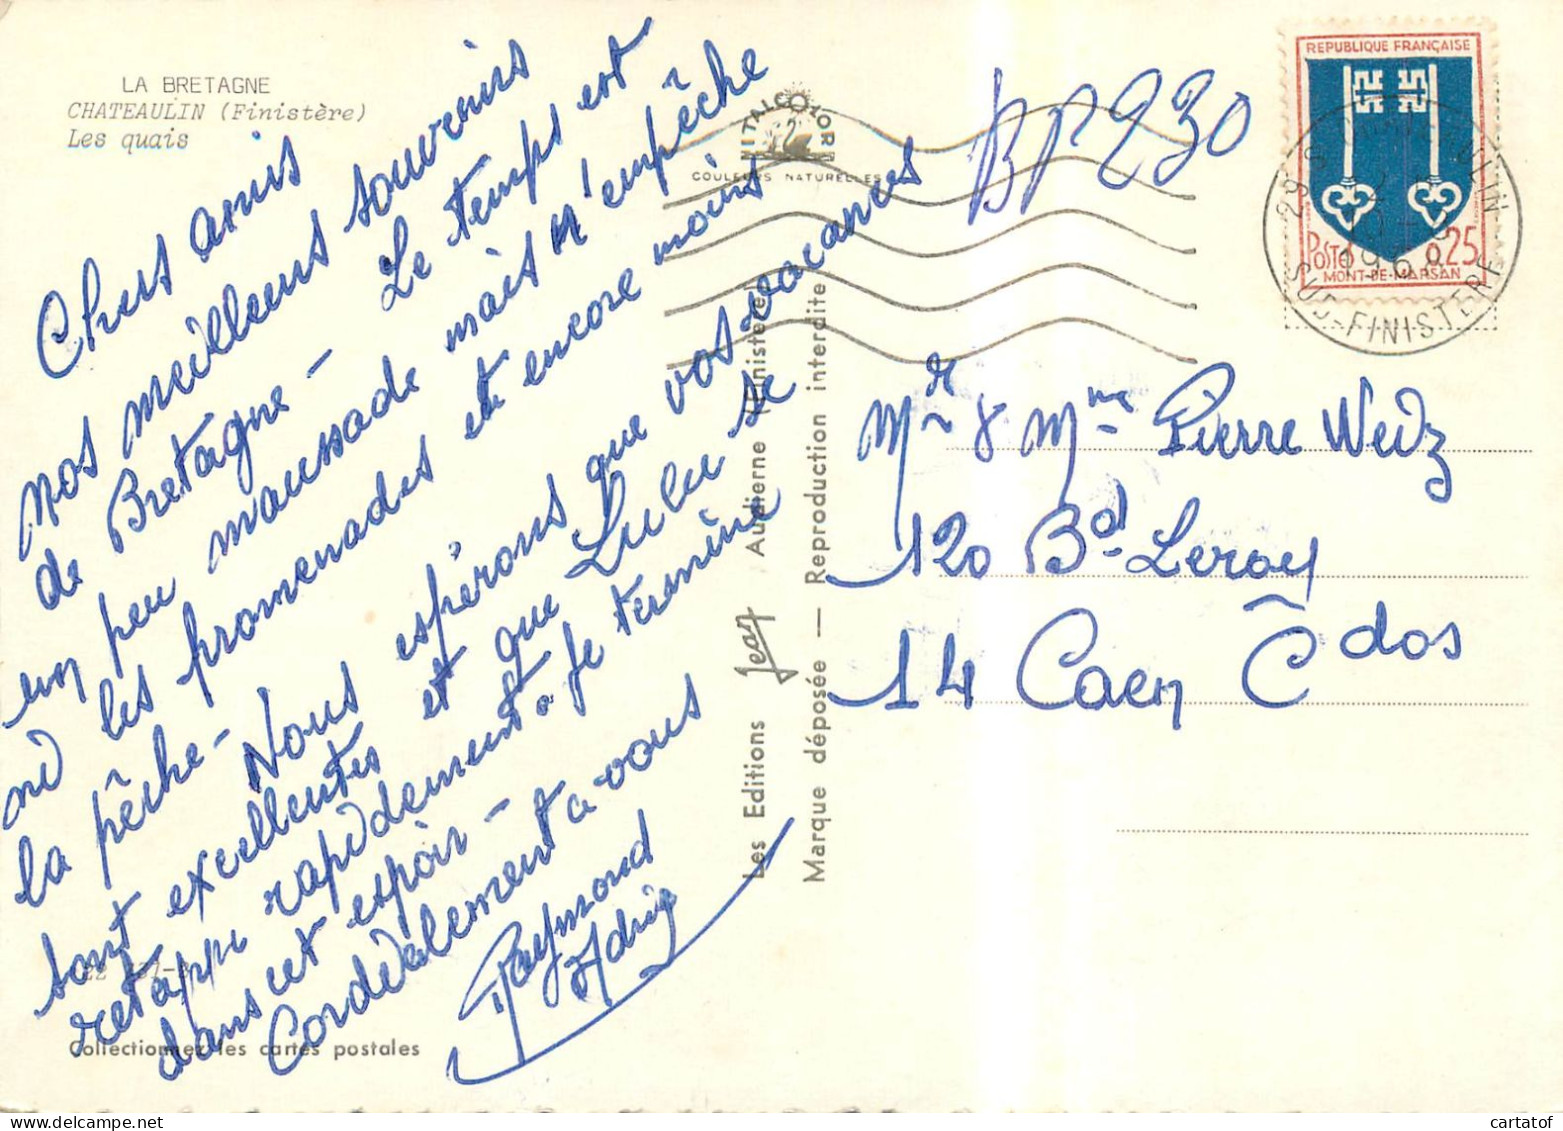 LA BRETAGNE
CHATEAULIN (Finistère)
Les quais
Chers amis
nos meilleurs souvenirs
de Bretagne - Le temps est
un peu maussade mais n'empêche
ni les promenades et encore moins
la pêche - Nous espérons que vos vacances
sont excellentes et que Lulu se
retape rapidement. Je termine
dans cet espoir -
Cordialement à vous
Raymond
Collectionnez les cartes postales
ITALCOLOR
COULEURS NATURELLES
Les Editions Jean Audierne (Finistère)
Marque déposée — Reproduction interdite
BP 230
REPUBLIQUE FRANÇAISE
POSTES 0,25
MONT-DE-MARSAN
SUD-FINISTERE
Mr & Mme Pierre Weiz
120 Bd Leroy
14 Caen Cdos
cartatof